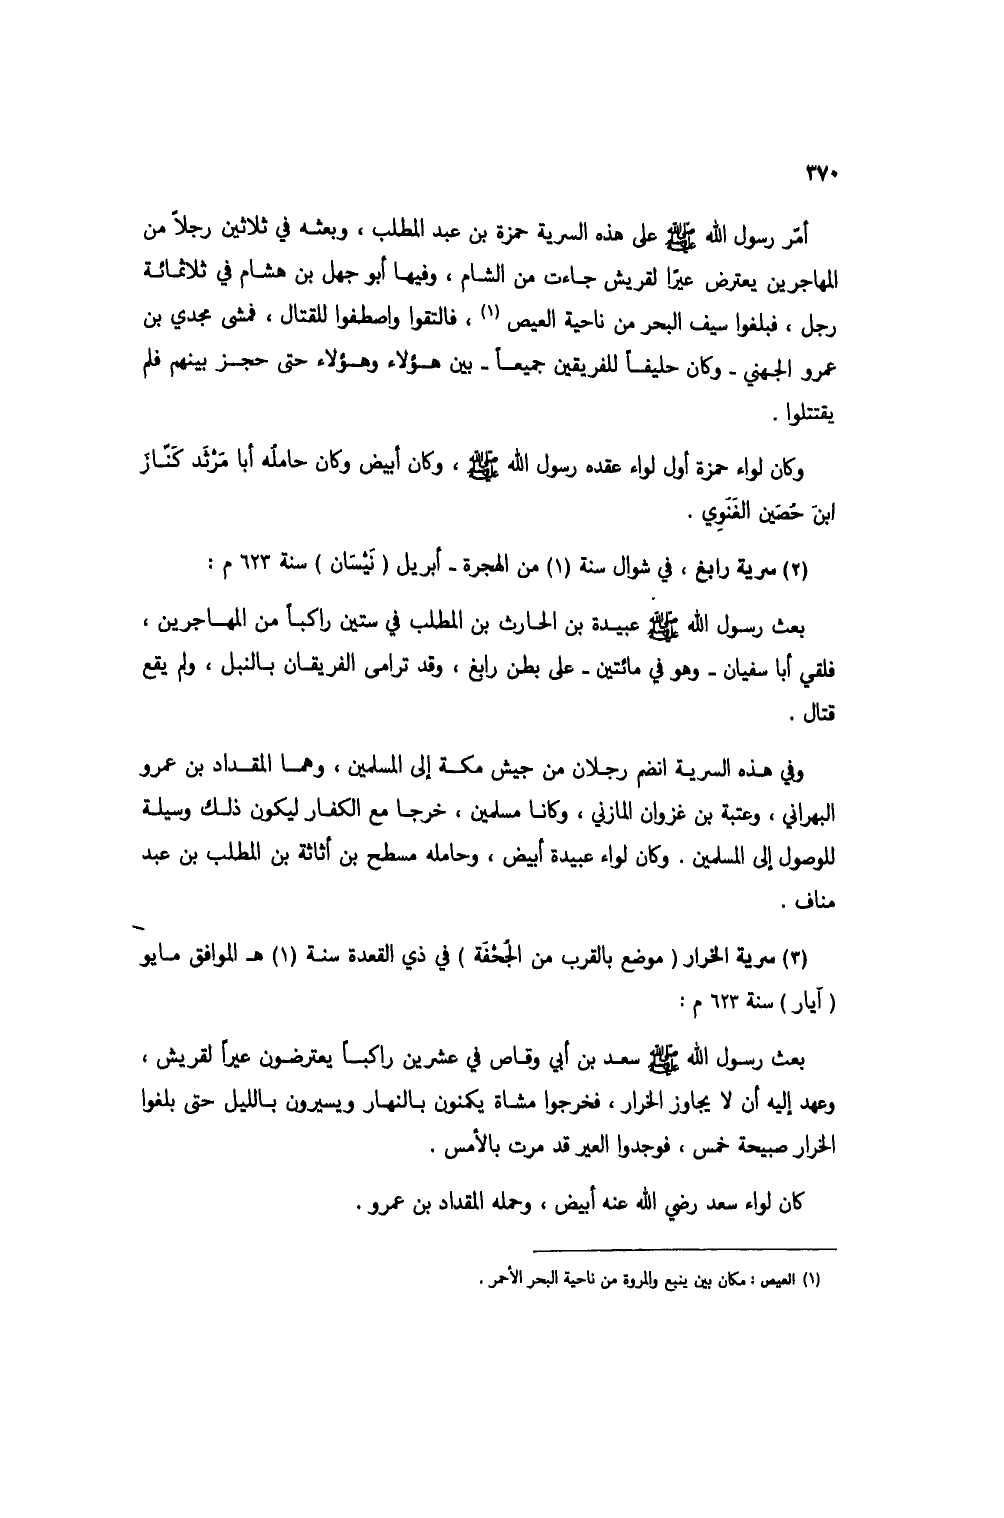 ٣٧٠
أمّر رسول الله ﷺ على هذه السرية حمزة بن عبد المطلب ، وبعثه في ثلاثين رجلاً من
المهاجرين يعترض عيرًا لقريش جاءت من الشام ، وفيها أبو جهل بن هشام في ثلاثمائة
رجل ، فبلغوا سيف البحر من ناحية العيص (١) ، فالتقوا واصطفوا للقتال ، فمشى مجدي بن
عمرو الجهني ـ وكان حليفاً للفريقين جميعاً ـ بين هؤلاء وهؤلاء حتى حجز بينهم فلم
يقتتلوا .
وكان لواء حمزة أول لواء عقده رسول الله ﷺ ، وكان أبيض وكان حاملُه أبا مَرْثَد كَنّازَ
ابنَ حُصَين الغَنَوِي .
(٢) سرية رابغ ، في شوال سنة (١) من الهجرة ـ أبريل ( نَيْسَان ) سنة ٦٢٣ م :
بعث رسول الله ﷺ عبيدة بن الحارث بن المطلب في ستين راكباً من المهاجرين ،
فلقي أبا سفيان ـ وهو في مائتين ـ على بطن رابغ ، وقد ترامى الفريقان بالنبل ، ولم يقع
قتال .
وفي هذه السرية انضم رجلان من جيش مكة إلى المسلمين ، وهما المقداد بن عمرو
البهراني ، وعتبة بن غزوان المازني ، وكانا مسلمين ، خرجا مع الكفار ليكون ذلك وسيلة
للوصول إلى المسلمين . وكان لواء عبيدة أبيض ، وحامله مسطح بن أثاثة بن المطلب بن عبد
مناف .
(٣) سرية الخرار ( موضع بالقرب من الجُحْفَة ) في ذي القعدة سنة (١) هـ الموافق مايو
( آيار ) سنة ٦٢٣ م :
بعث رسول الله ﷺ سعد بن أبي وقاص في عشرين راكباً يعترضون عيراً لقريش ،
وعهد إليه أن لا يجاوز الخرار ، فخرجوا مشاة يكمنون بالنهار ويسيرون بالليل حتى بلغوا
الخرار صبيحة خمس ، فوجدوا العير قد مرت بالأمس .
كان لواء سعد رضي الله عنه أبيض ، وحمله المقداد بن عمرو .
(١) العيص : مكان بين ينبع والمروة من ناحية البحر الأحمر .